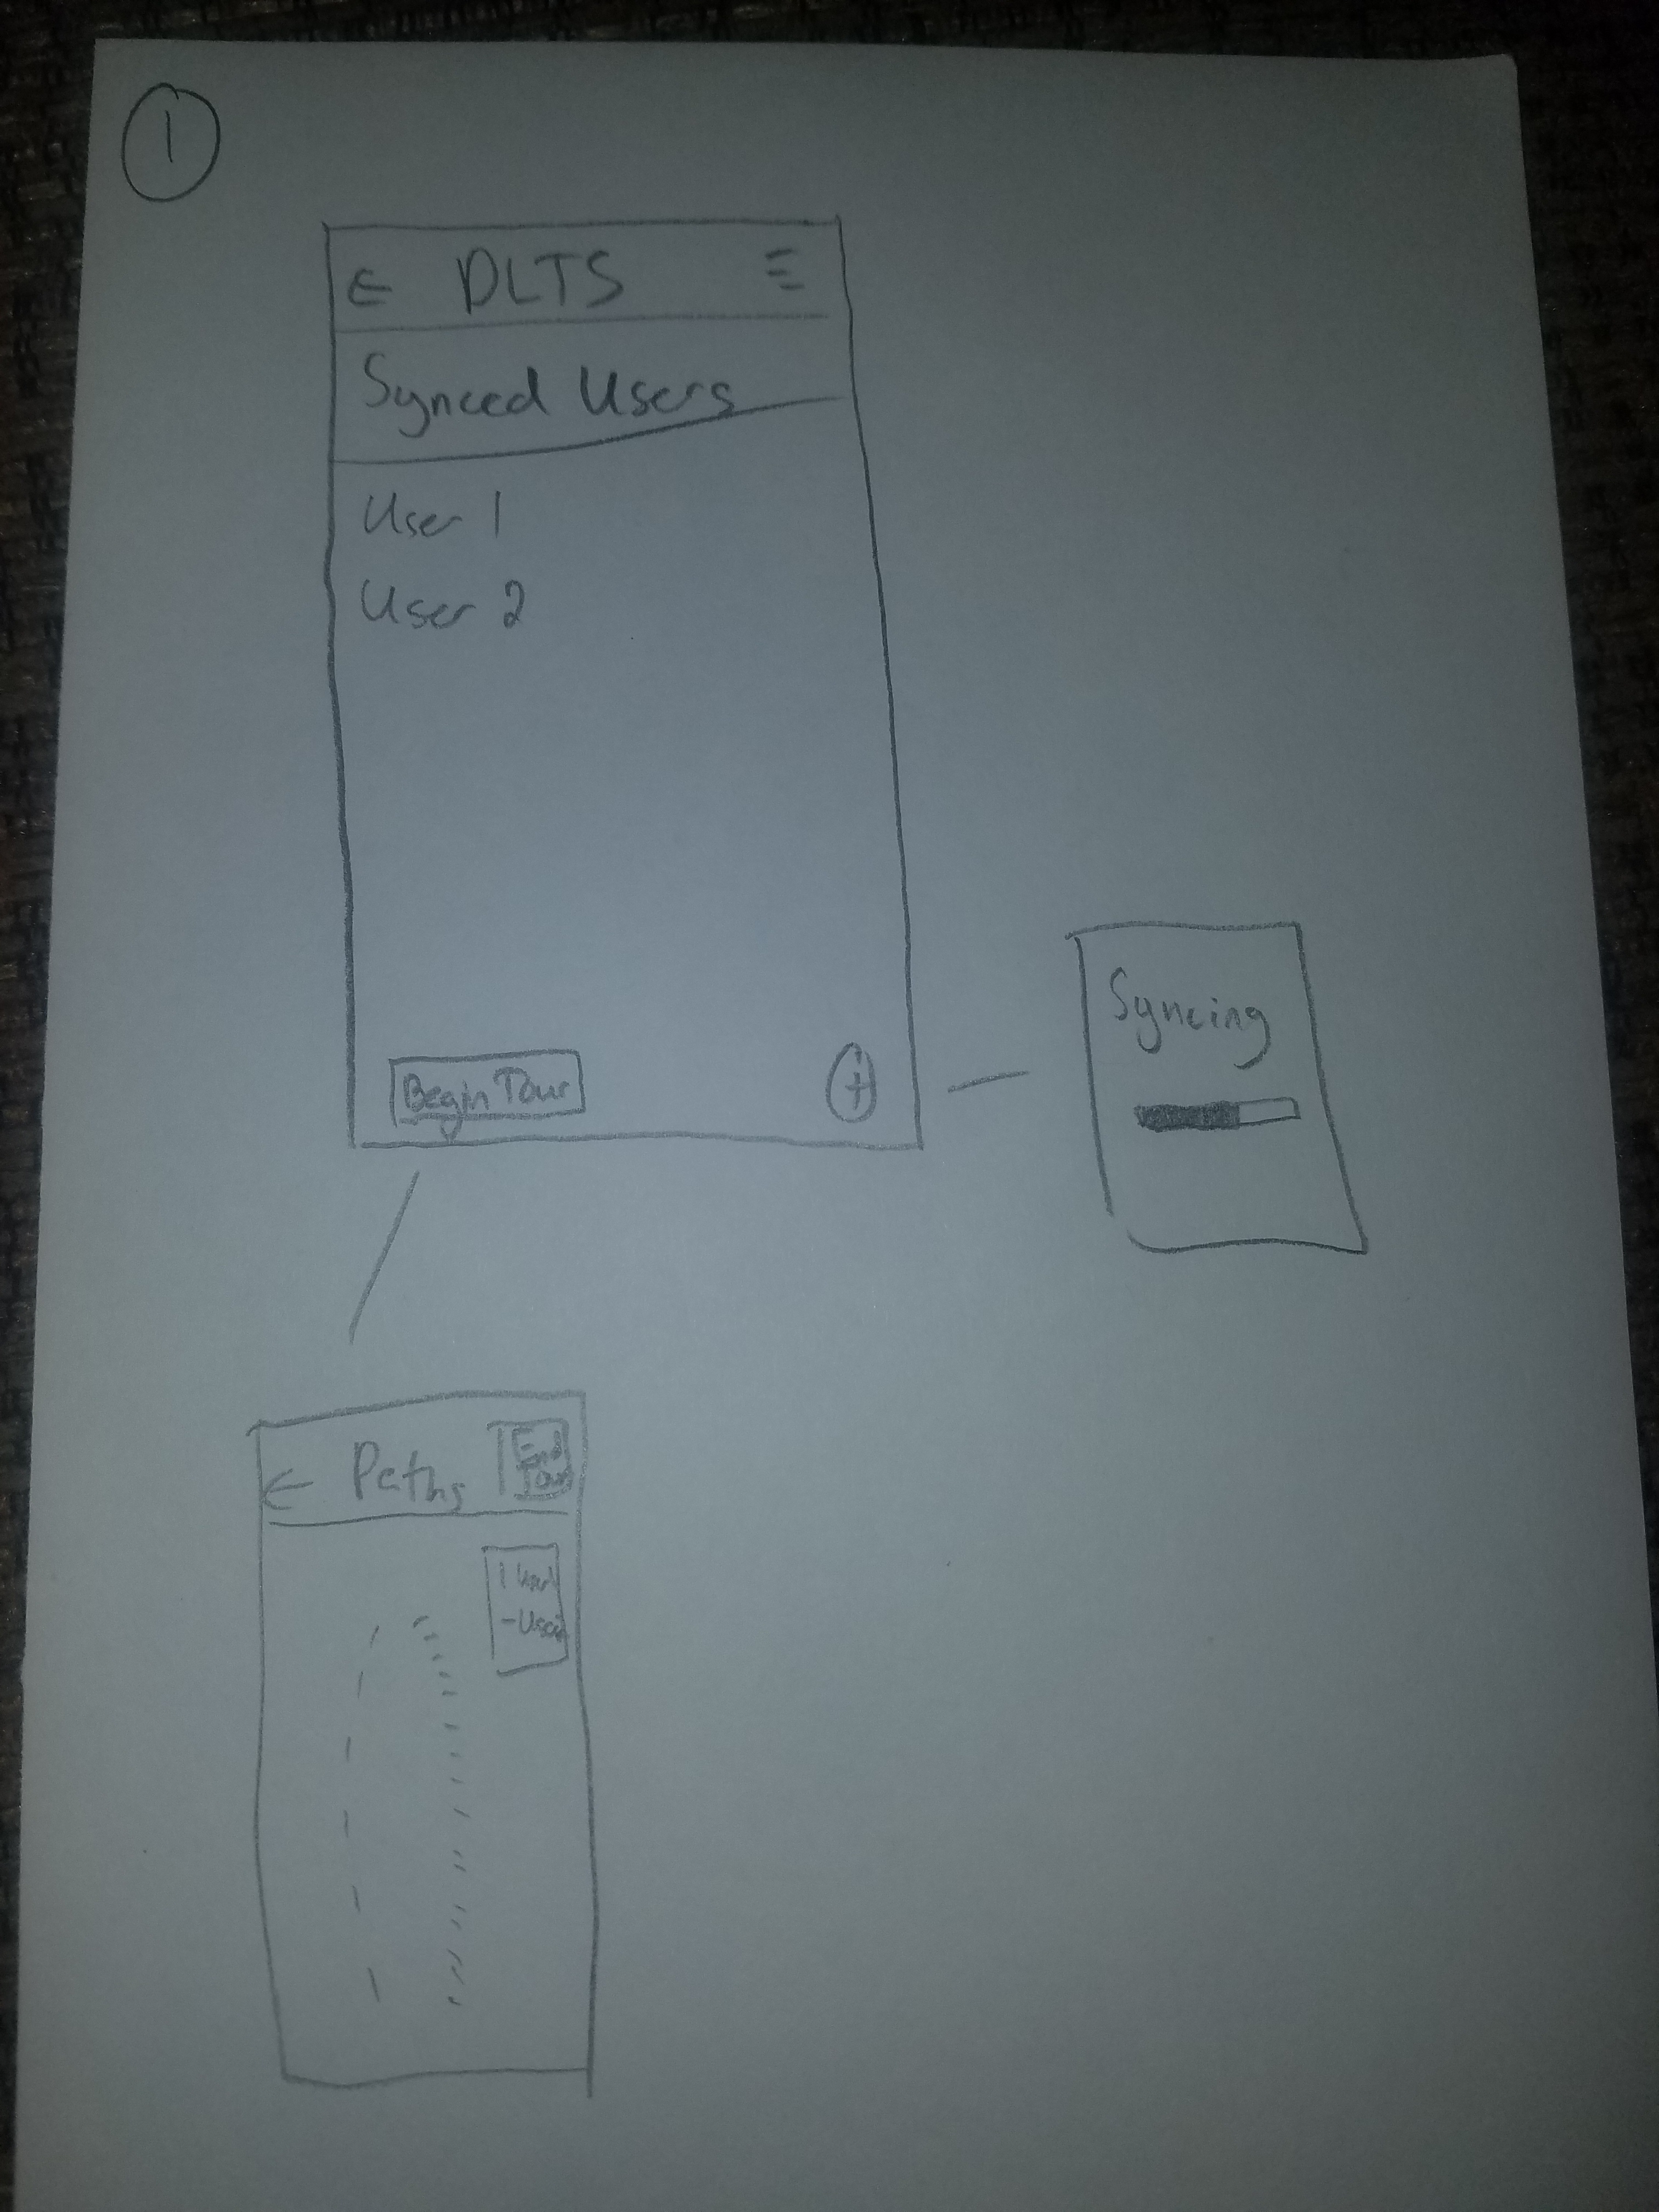 1
← DLTS
Synced Users
User 1
User 2
Begin Tour
+
Syncing
← Paths
End
Tour